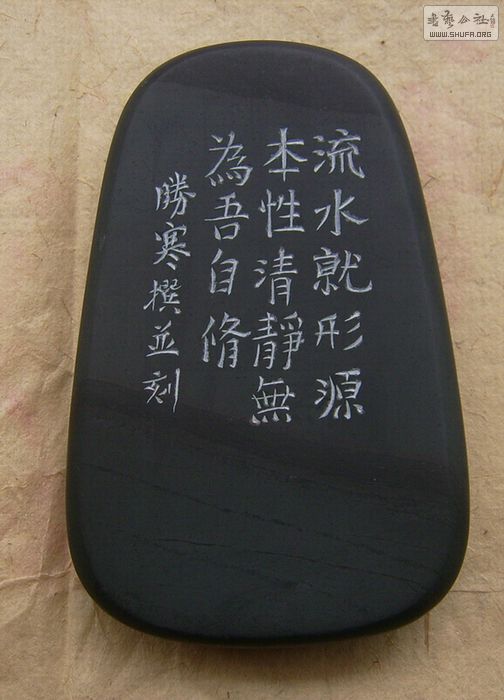 流水就形源
本性清靜無
為吾自脩
勝寒撰並刻
書藝公社
WWW.SHUFA.ORG